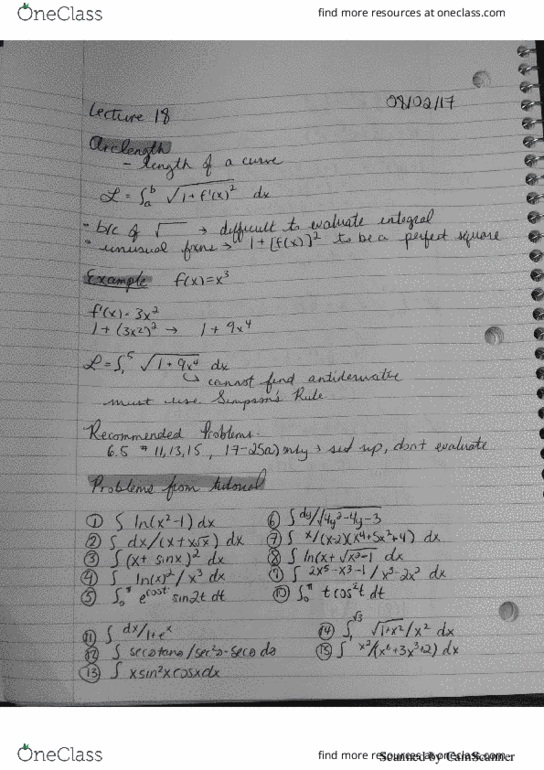 OneClass find more resources at oneclass.com
Lecture 18 08/02/17
Arclength
- length of a curve
L = ∫ₐᵇ √1 + f'(x)² dx
- b/c of √ → difficult to evaluate integral
* unusual fxns → 1 + [f(x)]² to be a perfect square
Example f(x)=x³
f'(x) = 3x²
1 + (3x²)² → 1 + 9x⁴
L = ∫₁⁵ √1 + 9x⁴ dx
↳ cannot find antiderivative
must use Simpson's Rule
Recommended Problems.
6.5 # 11,13,15, 17-25a) only → set up, don't evaluate
Problems from tutorial
① ∫ ln(x²-1) dx
② ∫ dx/(x+x√x) dx
③ ∫ (x+ sinx)² dx
④ ∫ ln(x)²/x³ dx
⑤ ∫₀^π e^cost sin2t dt
⑥ ∫ dy/√4y²-4y-3
⑦ ∫ x/(x-2)(x⁴+5x²+4) dx
⑧ ∫ ln(x+√x²-1 dx
⑨ ∫ 2x⁵-x³-1/x³-2x² dx
⑩ ∫₀^π tcos²t dt
⑪ ∫ dx/1+eˣ
⑫ ∫ secθtanθ/sec²θ-secθ dθ
⑬ ∫ xsin²xcosxdx
⑭ ∫₁^√3 √1+x²/x² dx
⑮ ∫ x²/(x⁶+3x³+2) dx
OneClass find more resources at oneclass.com
Scanned by CamScanner